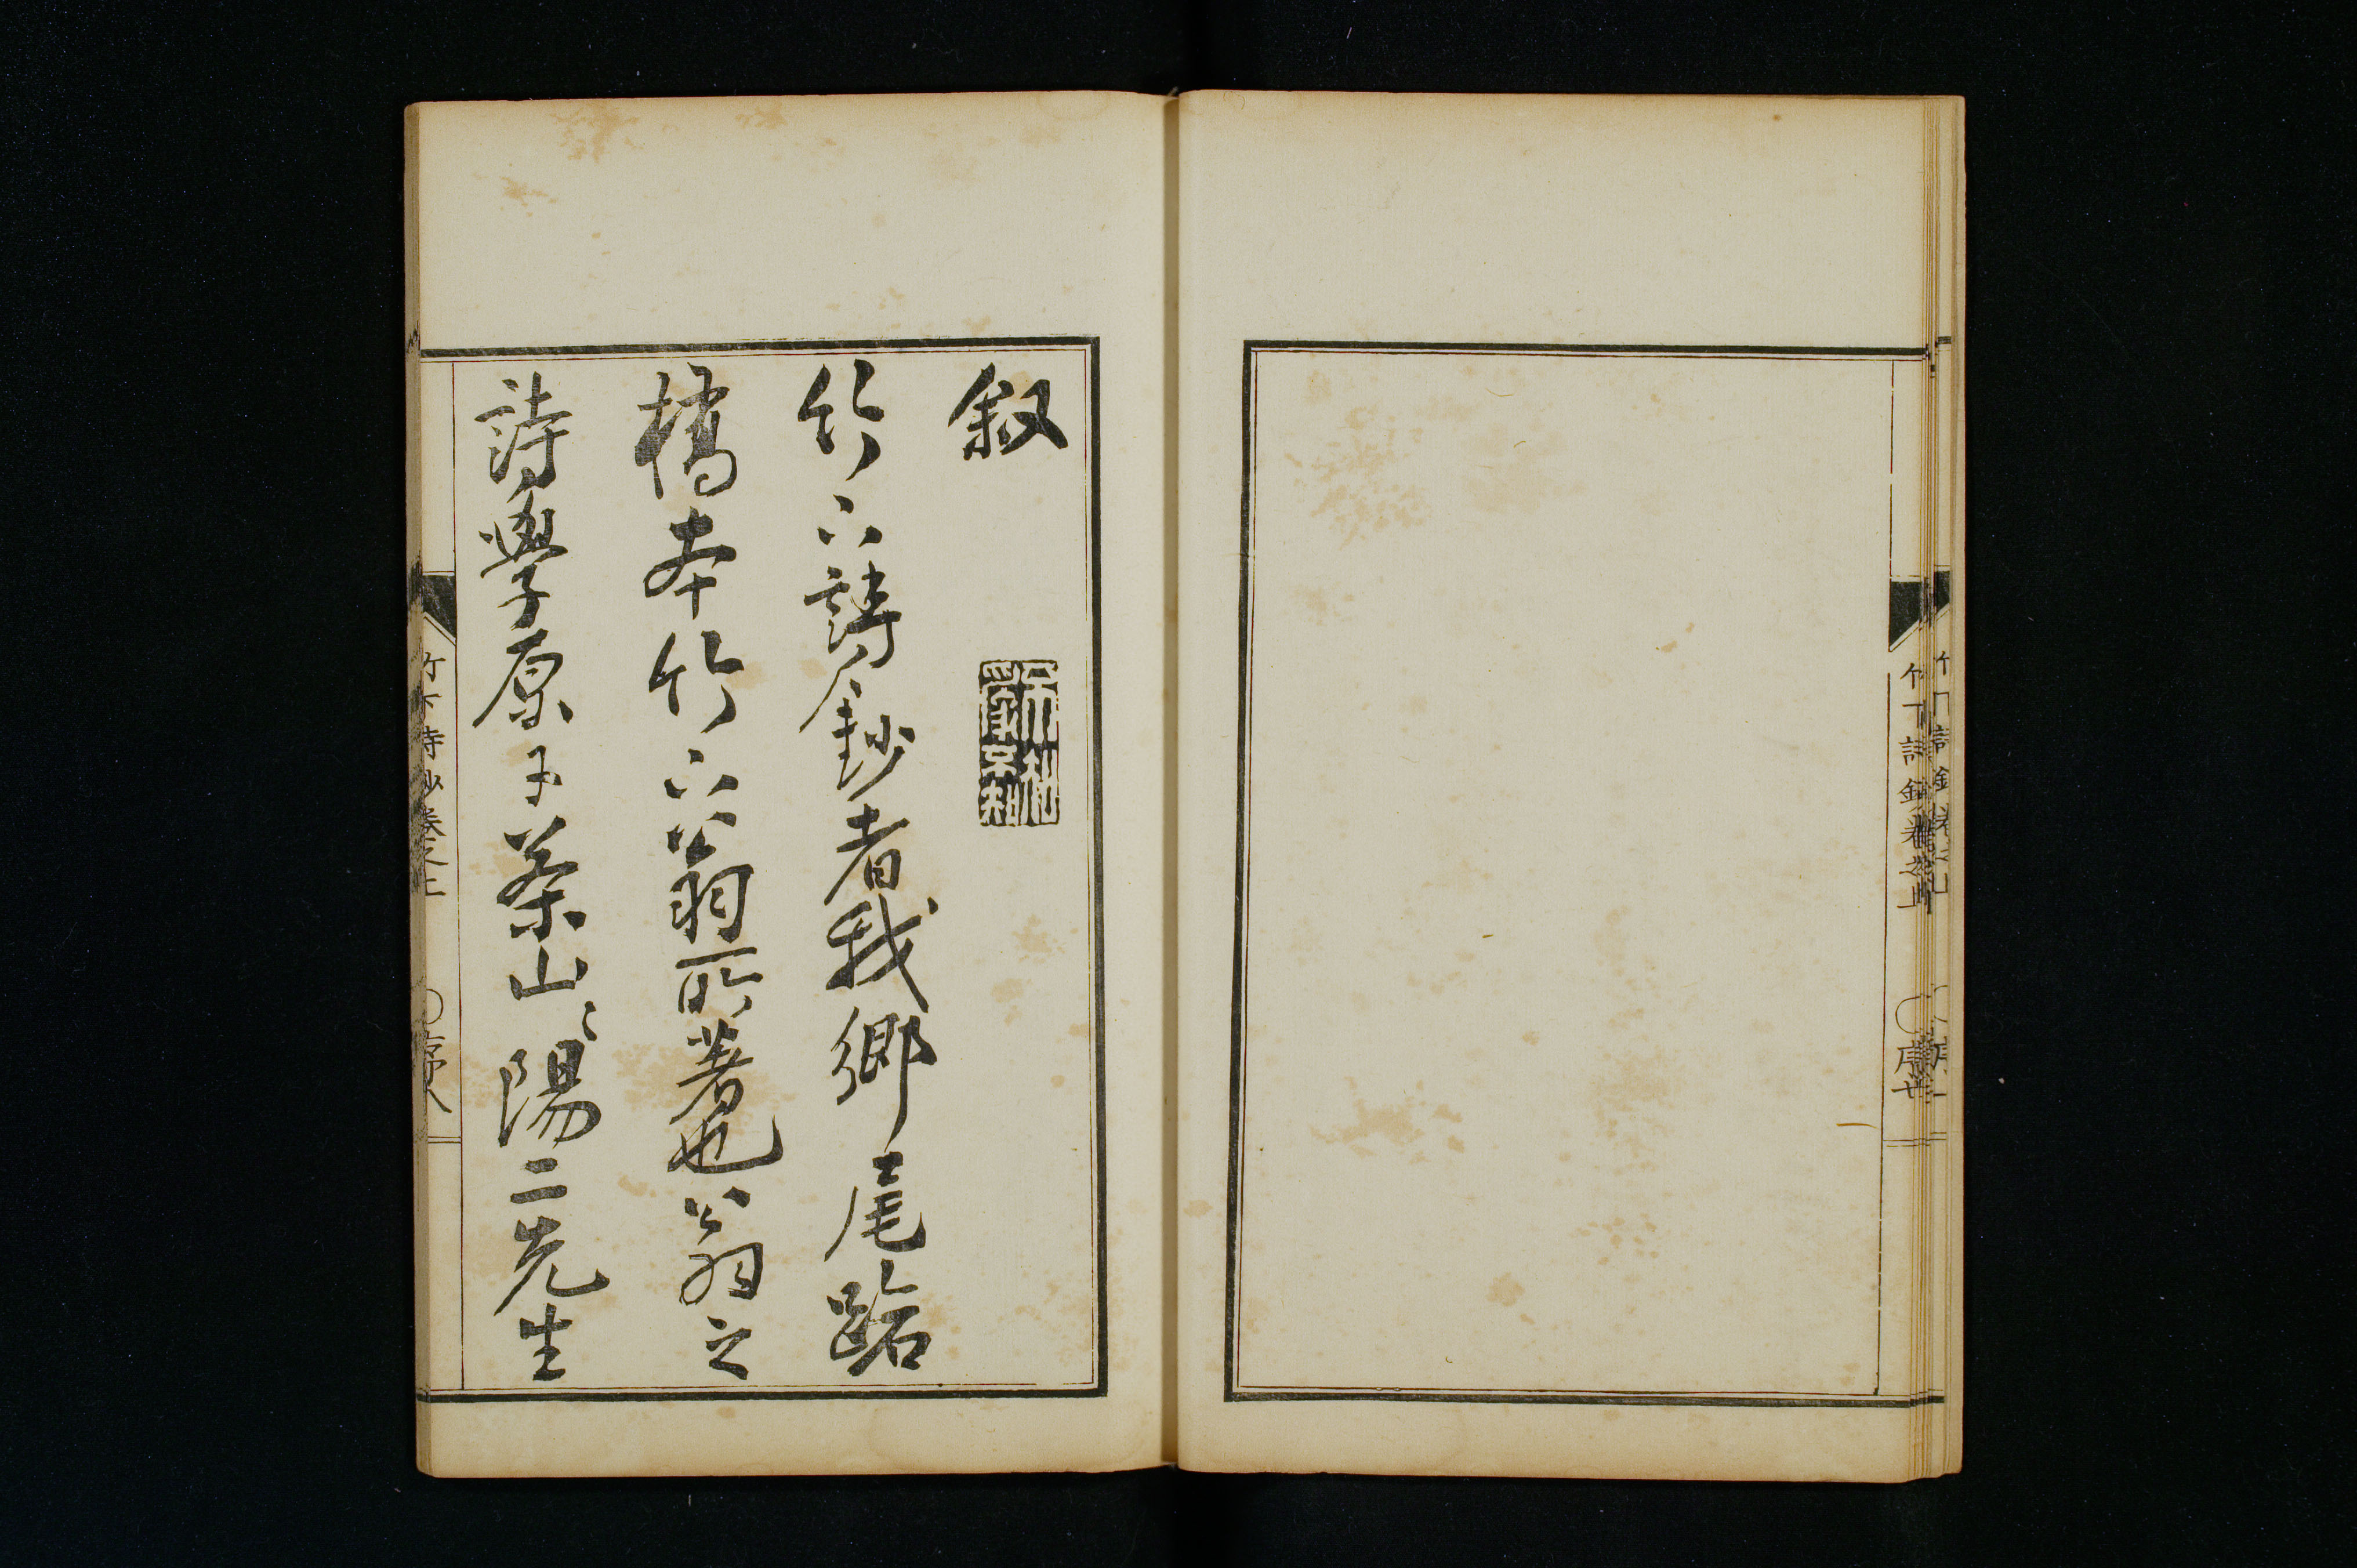 竹下詩鈔卷之上
序七
叙
竹下詩鈔者我郷尾路
橋本竹下翁所著也翁之
詩學原于茶山〻陽二先生
竹下詩鈔卷之上
序八